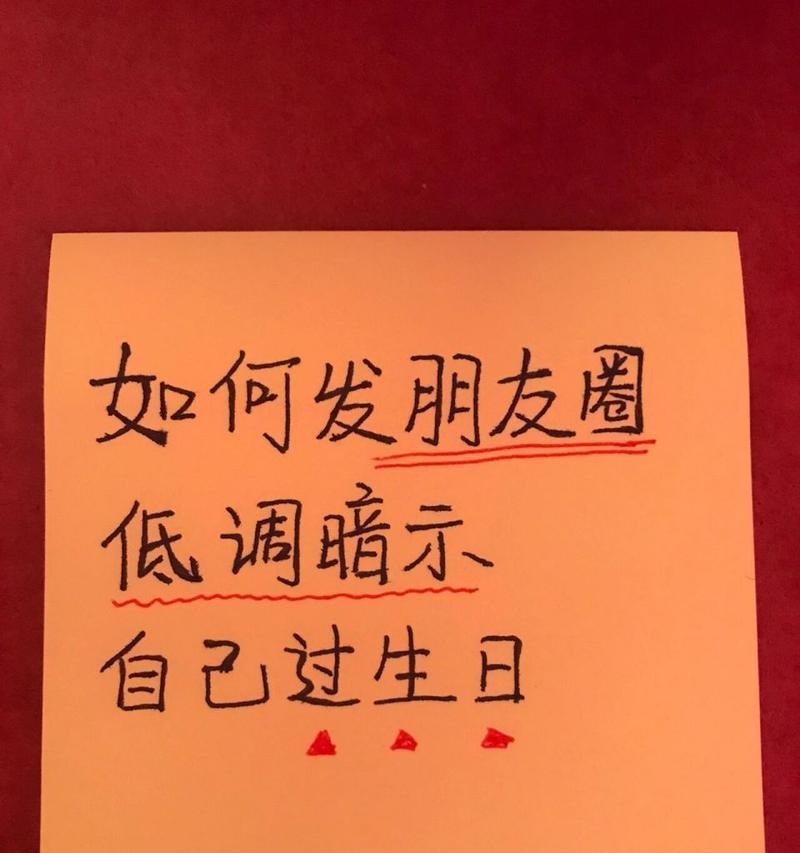 如何发朋友圈
低调暗示
自己过生日